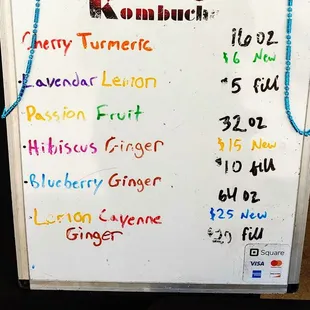 Kombucha
Cherry Turmeric 16 oz
$6 New
Lavendar Lemon $5 fill
Passion Fruit
32 oz
Hibiscus Ginger $15 New
$10 fill
Blueberry Ginger
64 oz
Lemon Cayenne $25 New
Ginger fill
Square
VISA